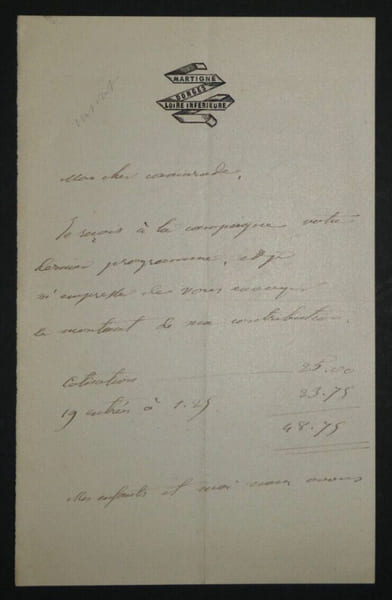 MARTIGNÉ
DONGES
LOIRE INFÉRIEURE
Mon cher camarade,
Je reçois à la campagne votre
dernier programme, et je
m'empresse de vous envoyer
le montant de ma contribution.
Cotisation 25.00
19 entrées à 1.25 23.75
48.75
Mes enfants et moi nous avons